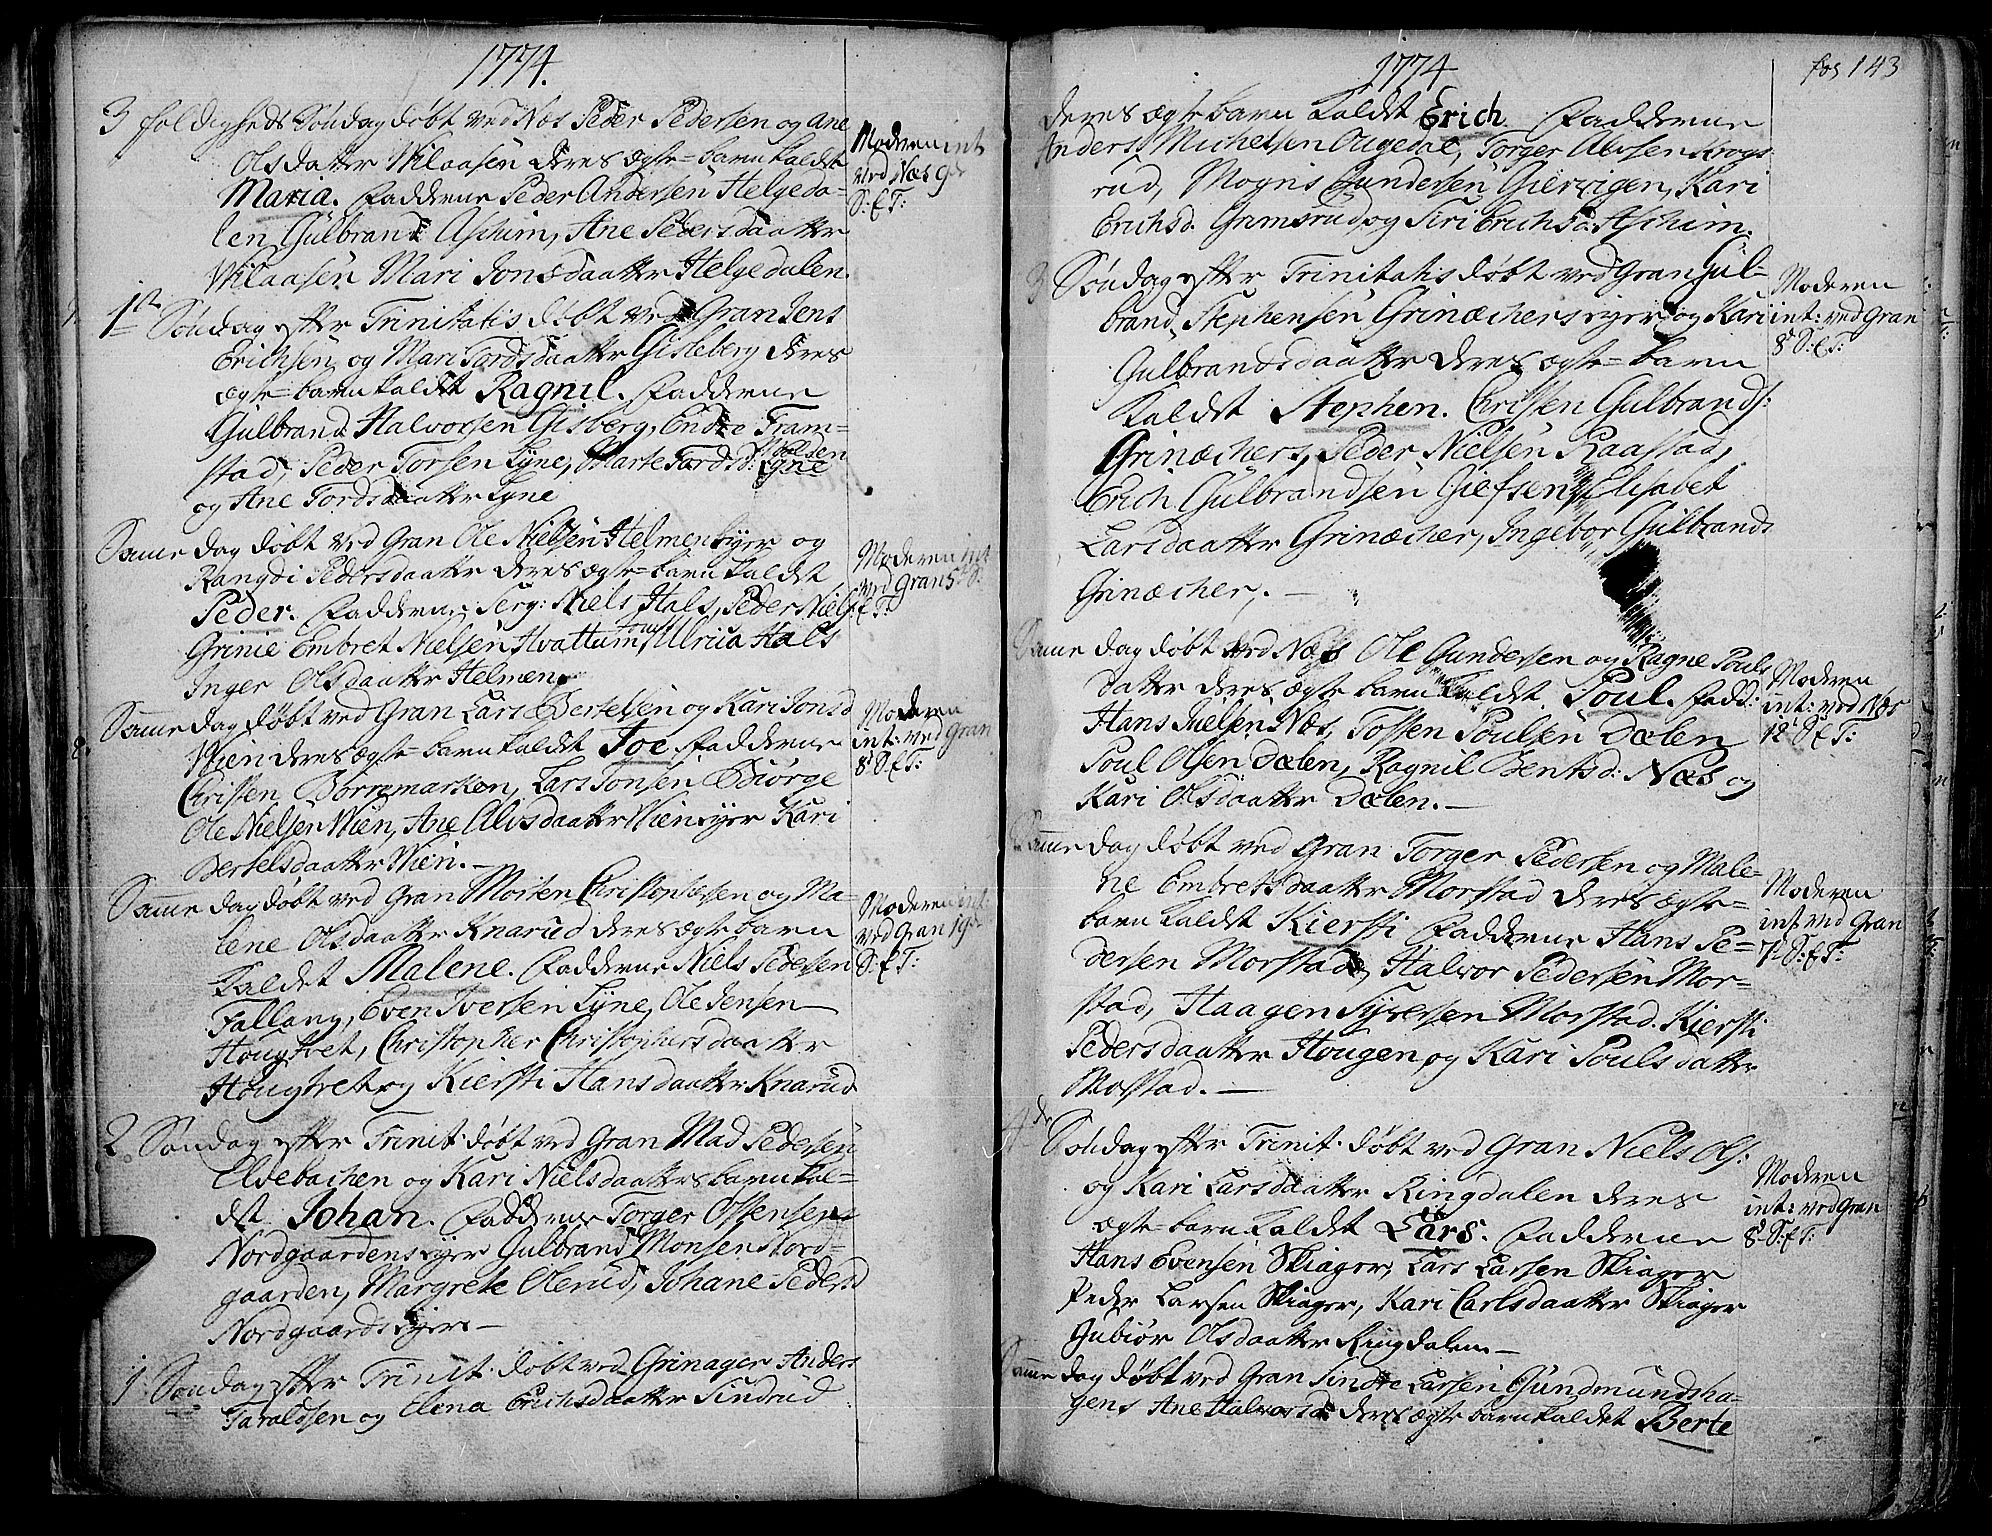 1774.
3 foldigheds Søndag døbt ved Næs Peder Pedersen og Ane
Olsdatter Wilaasen deres ægte=barn kaldt
Maria. Fadderne Peder Andersen Helgeda=
len Gulbrand Aschim, Ane Pedersdaatter
Wilaasen Mari Jonsdaatter Helgedalen.
Moderen int
ved Næs 9de
S: E T:
1ste Søndag efter Trinitatis døbt ved Gran Jens
Erichsen og Mari Tordsdaatter Gisleberg deres
ægte=barn kaldet Ragnil. Fadderne
Gulbrand Halvorsen Gisberg, Endre Fram=
stad, Peder Torsen Lyne, Marte Tordsd: Lyne
og Ane Tordsdaatter Lyne
Same dag døbt ved Gran Ole Nielsen Helmen Eyer og
Rangdi Pedersdaatter deres ægte=barn kaldet
Peder. Fadderne Serg: Niels Hals, Peder Niels:
Grinie Embret Nielsen Hvattum, Ulrica Hals
Inger Olsdaatter Helmen.
Moderen int
ved Gran 5te S:
E T:
Same dag døbt ved Gran Lars Bertelsen og Kari Jonsd
Wien deres ægte=barn kaldet Joe Fadderne
Christen Borremarken, Lars Jonsen Biørge
Ole Nielsen Wien, Ane Alvsdaatter Wien eyer Kari
Bertelsdaatter Wien.—
Moderen
int: ved Gran
8de S: E T:
Same dag døbt ved Gran Morten Christophersen og Ma=
lene Olsdaatter Knarud deres ægte barn
kaldet Malene. Fadderne Niels Pedersen
Fallang, Even Iversen Lyne, Ole Jensen
Hougtvet, Christopher Christophersdaatter
Hougtvet og Kiersti Hansdaatter Knarud
Moderen int:
ved Gran 19de
S: E T:
2. Søndag efter Trinit: døbt ved Gran Mad Pedersen
Elvebachen og Kari Nielsdaatters barn kal=
det Johan. Fadderne Torger Ostensen
Nordgaardens eyer Gulbrand Monsen Nord=
gaarden, Margrete Olerud, Johane Pedersd
Nordgaards Eyer—
1. Søndag efter Trinit: døbt ved Grinager Anders
Taraldsen og Elena Erichsdaatter Sindrud
1774
fos 143
deres ægte barn kaldt Erich. Fadderne
Anders Michelsen Augedal, Torger Alvsen Krogs
rud, Mogns Gundersen Giervigen, Kari
Erichsd. Grimsrud og Siri Erichsd: Aschim.
3 Søndag efter Trinitatis døbt ved Gran Gul=
brand Stephensen Grinæchers eyer og Kari
Gulbrandsdaatter deres ægte=barn
kaldet Stephen. Christen Gulbrands:
Grinæchers, Peder Nielsen Raastad,
Erich Gulbrandsen Giefsen, Elisabet
Larsdaatter Grinæcher, Ingebor Gulbrands
Grinæcher.—
Moderen
int: ved Gran
8de S: E T:
Same dag døbt ved Næs Ole Gundersen og Ragne Pouls
datter deres ægte barn kaldet Poul. Fadd:
Hans Juelsen Næs, Tosten Poulsen Dælen
Poul Olsen Dælen, Ragnil Bentsd: Næs og
Kari Olsdaatter Dælen.—
Moderen
int: ved Næs
12te S: E T:
Same dag døbt ved Gran Torger Pedersen og Male=
ne Embretsdaatter Morstad deres ægte=
barn kaldet Kiersti Fadderne Hans Pe=
dersen Morstad, Halvor Pedersen Mor=
stad, Haagen Syversen Morstad. Kiersti
Pedersdaatter Hougen og Kari Poulsdatter
Morstad.—
Moderen
int: ved Gran
7de S: E T:
4de Søndag efter Trinit: døbt ved Gran Niels Ols:
og Kari Larsdaatter Ringdalen deres
ægte=barn kaldet Lars. Fadderne
Hans Evensen Skiager, Lars Larsen Skiager
Peder Larsen Skiager, Kari Carlsdaatter Skiager
Gubiør Olsdaatter Ringdalen—
Moderen
int: ved Gran
8de S: E T:
Same dag døbt ved Gran Sindre Larsen Gundmundsha=
gens Ane Halvorsd: deres ægte barn kaldet Berte